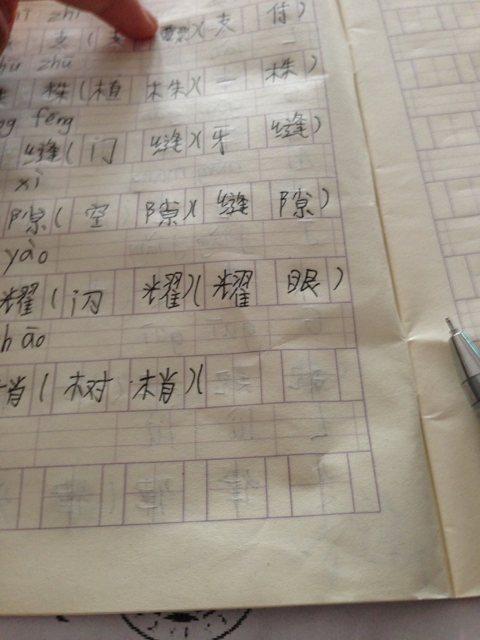 zhī
支(支 )(支 付)
zhū zhū
株 株(植 株)(一 株)
fèng
缝(门 缝)(牙 缝)
xì
隙(空 隙)(缝 隙)
yào
耀(闪 耀)(耀 眼)
hāo
梢(树 梢)(